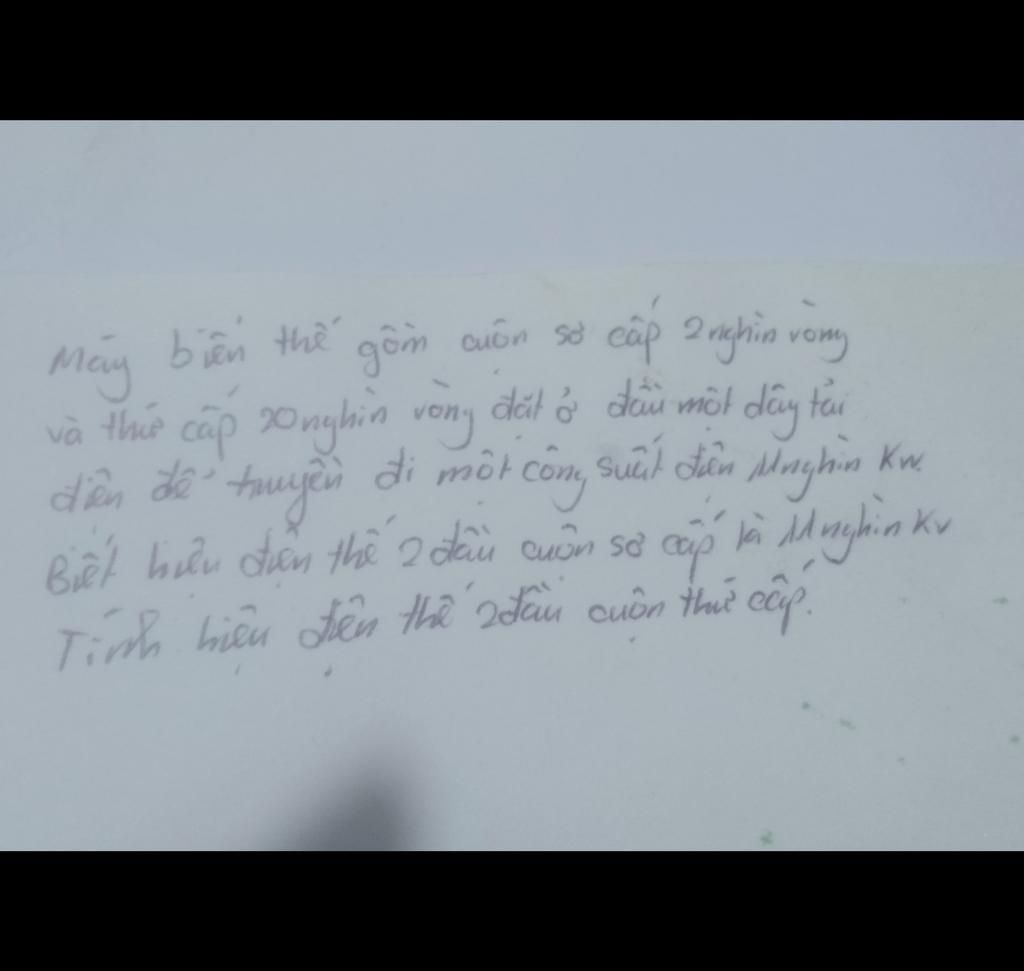 Máy biến thế gồm cuộn sơ cấp 2 nghìn vòng
và thứ cấp 20 nghìn vòng đặt ở đầu một dây tải
điện để truyền đi một công suất điện 11 nghìn KW.
Biết hiệu điện thế 2 đầu cuộn sơ cấp là 11 nghìn KV
Tính hiệu điện thế 2 đầu cuộn thứ cấp.